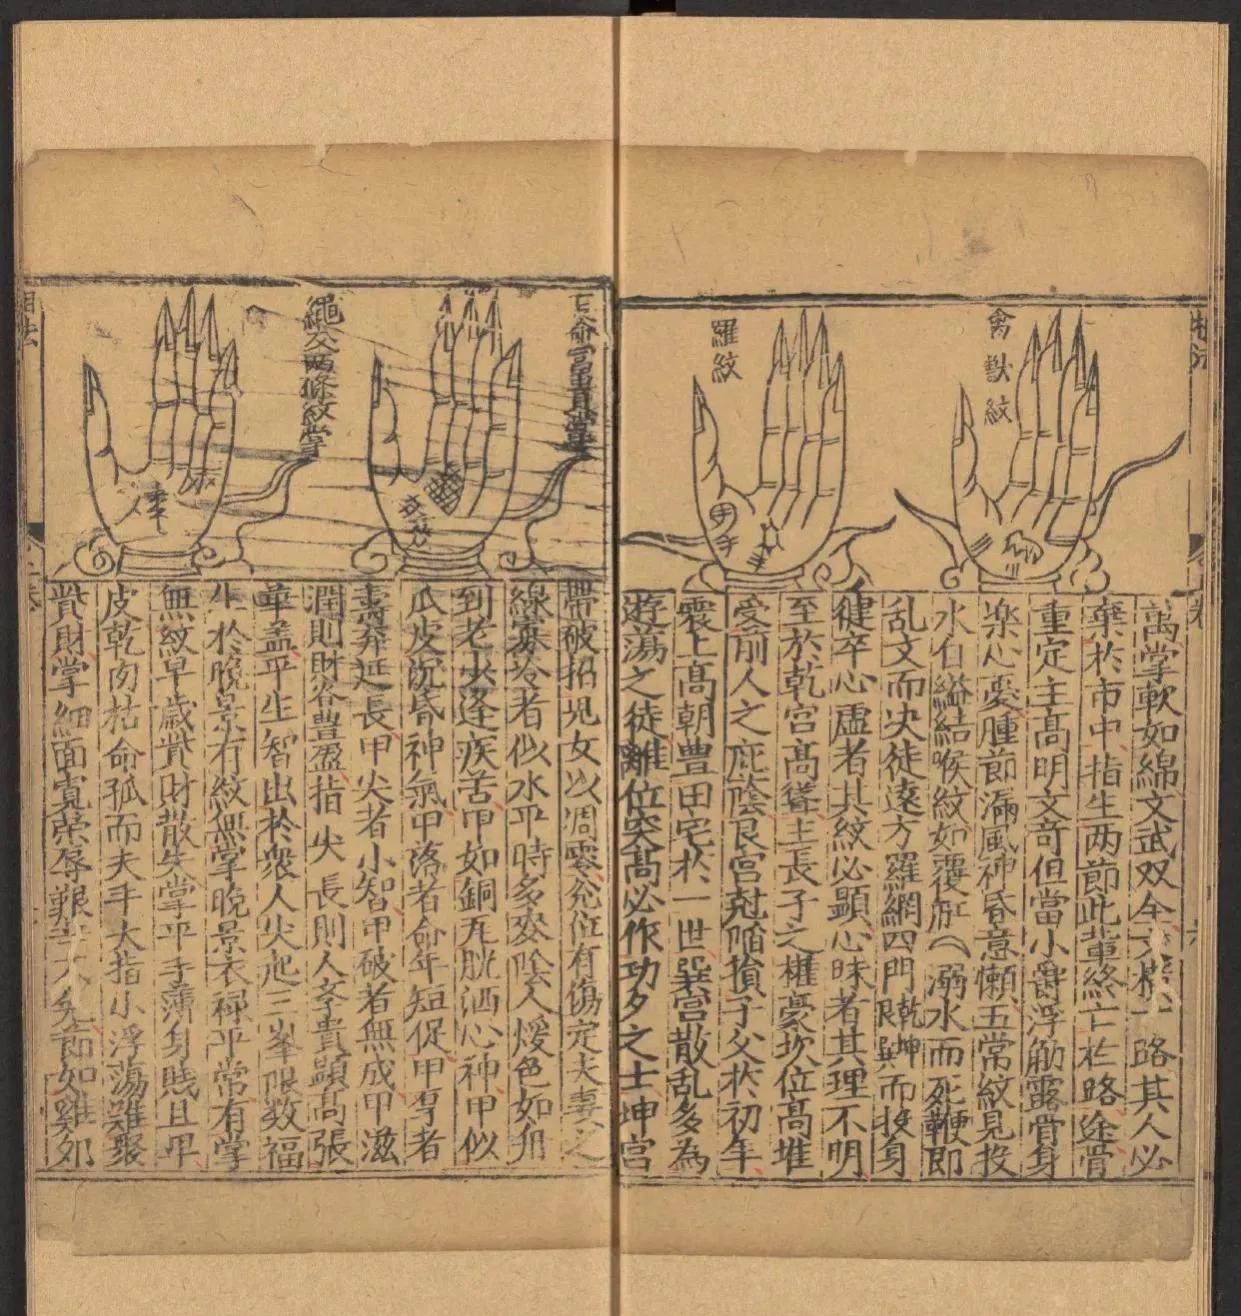 禽獸紋
羅紋
萬掌軟如綿文武双全六横一路其人必
棄於市中指生两節此輩終亡於路途骨
重定主高明文竒但當小壽浮觔露骨身
樂心憂腫節漏風神昏意懶五常紋見投
水自縊結喉紋如覆舡溺水而死鞭即
亂文而决徒遠方羅網四門乾坤艮巽而投身
健卒心虛者其紋必顯心昧者其理不明
至於乾宮高聳主長子之權豪坎位高堆
受前人之庇陰艮宮尅陷損子父於初年
震上高朝豊田宅於一世巽宮散乱多為
遊蕩之徒離位突高必作功夕之士坤宮
富貴掌
繩交兩條紋掌
帶破招児女以凋零兊位有傷定夫妻之
線寡於者似水平時多麥陰人煖色如冉
到老少逢疾苦甲如銅瓦胱洒心神甲似
瓜皮沉昏神氣甲落者命年短促甲厚者
壽莽延長甲尖者小智甲破者無成甲滋
潤則財谷豊盈指尖長則人孝貴顕高張
華盖平生智出於衆人尖起三峯限数福
生於晚景有紋無掌晚景衣禄平常有掌
無紋早歲貲財散失掌平手薄身賤且平
皮乾肉枯命孤而夭手大指小浮蕩難聚
貲財掌細面寛榮辱艱辛大免節如雞夘